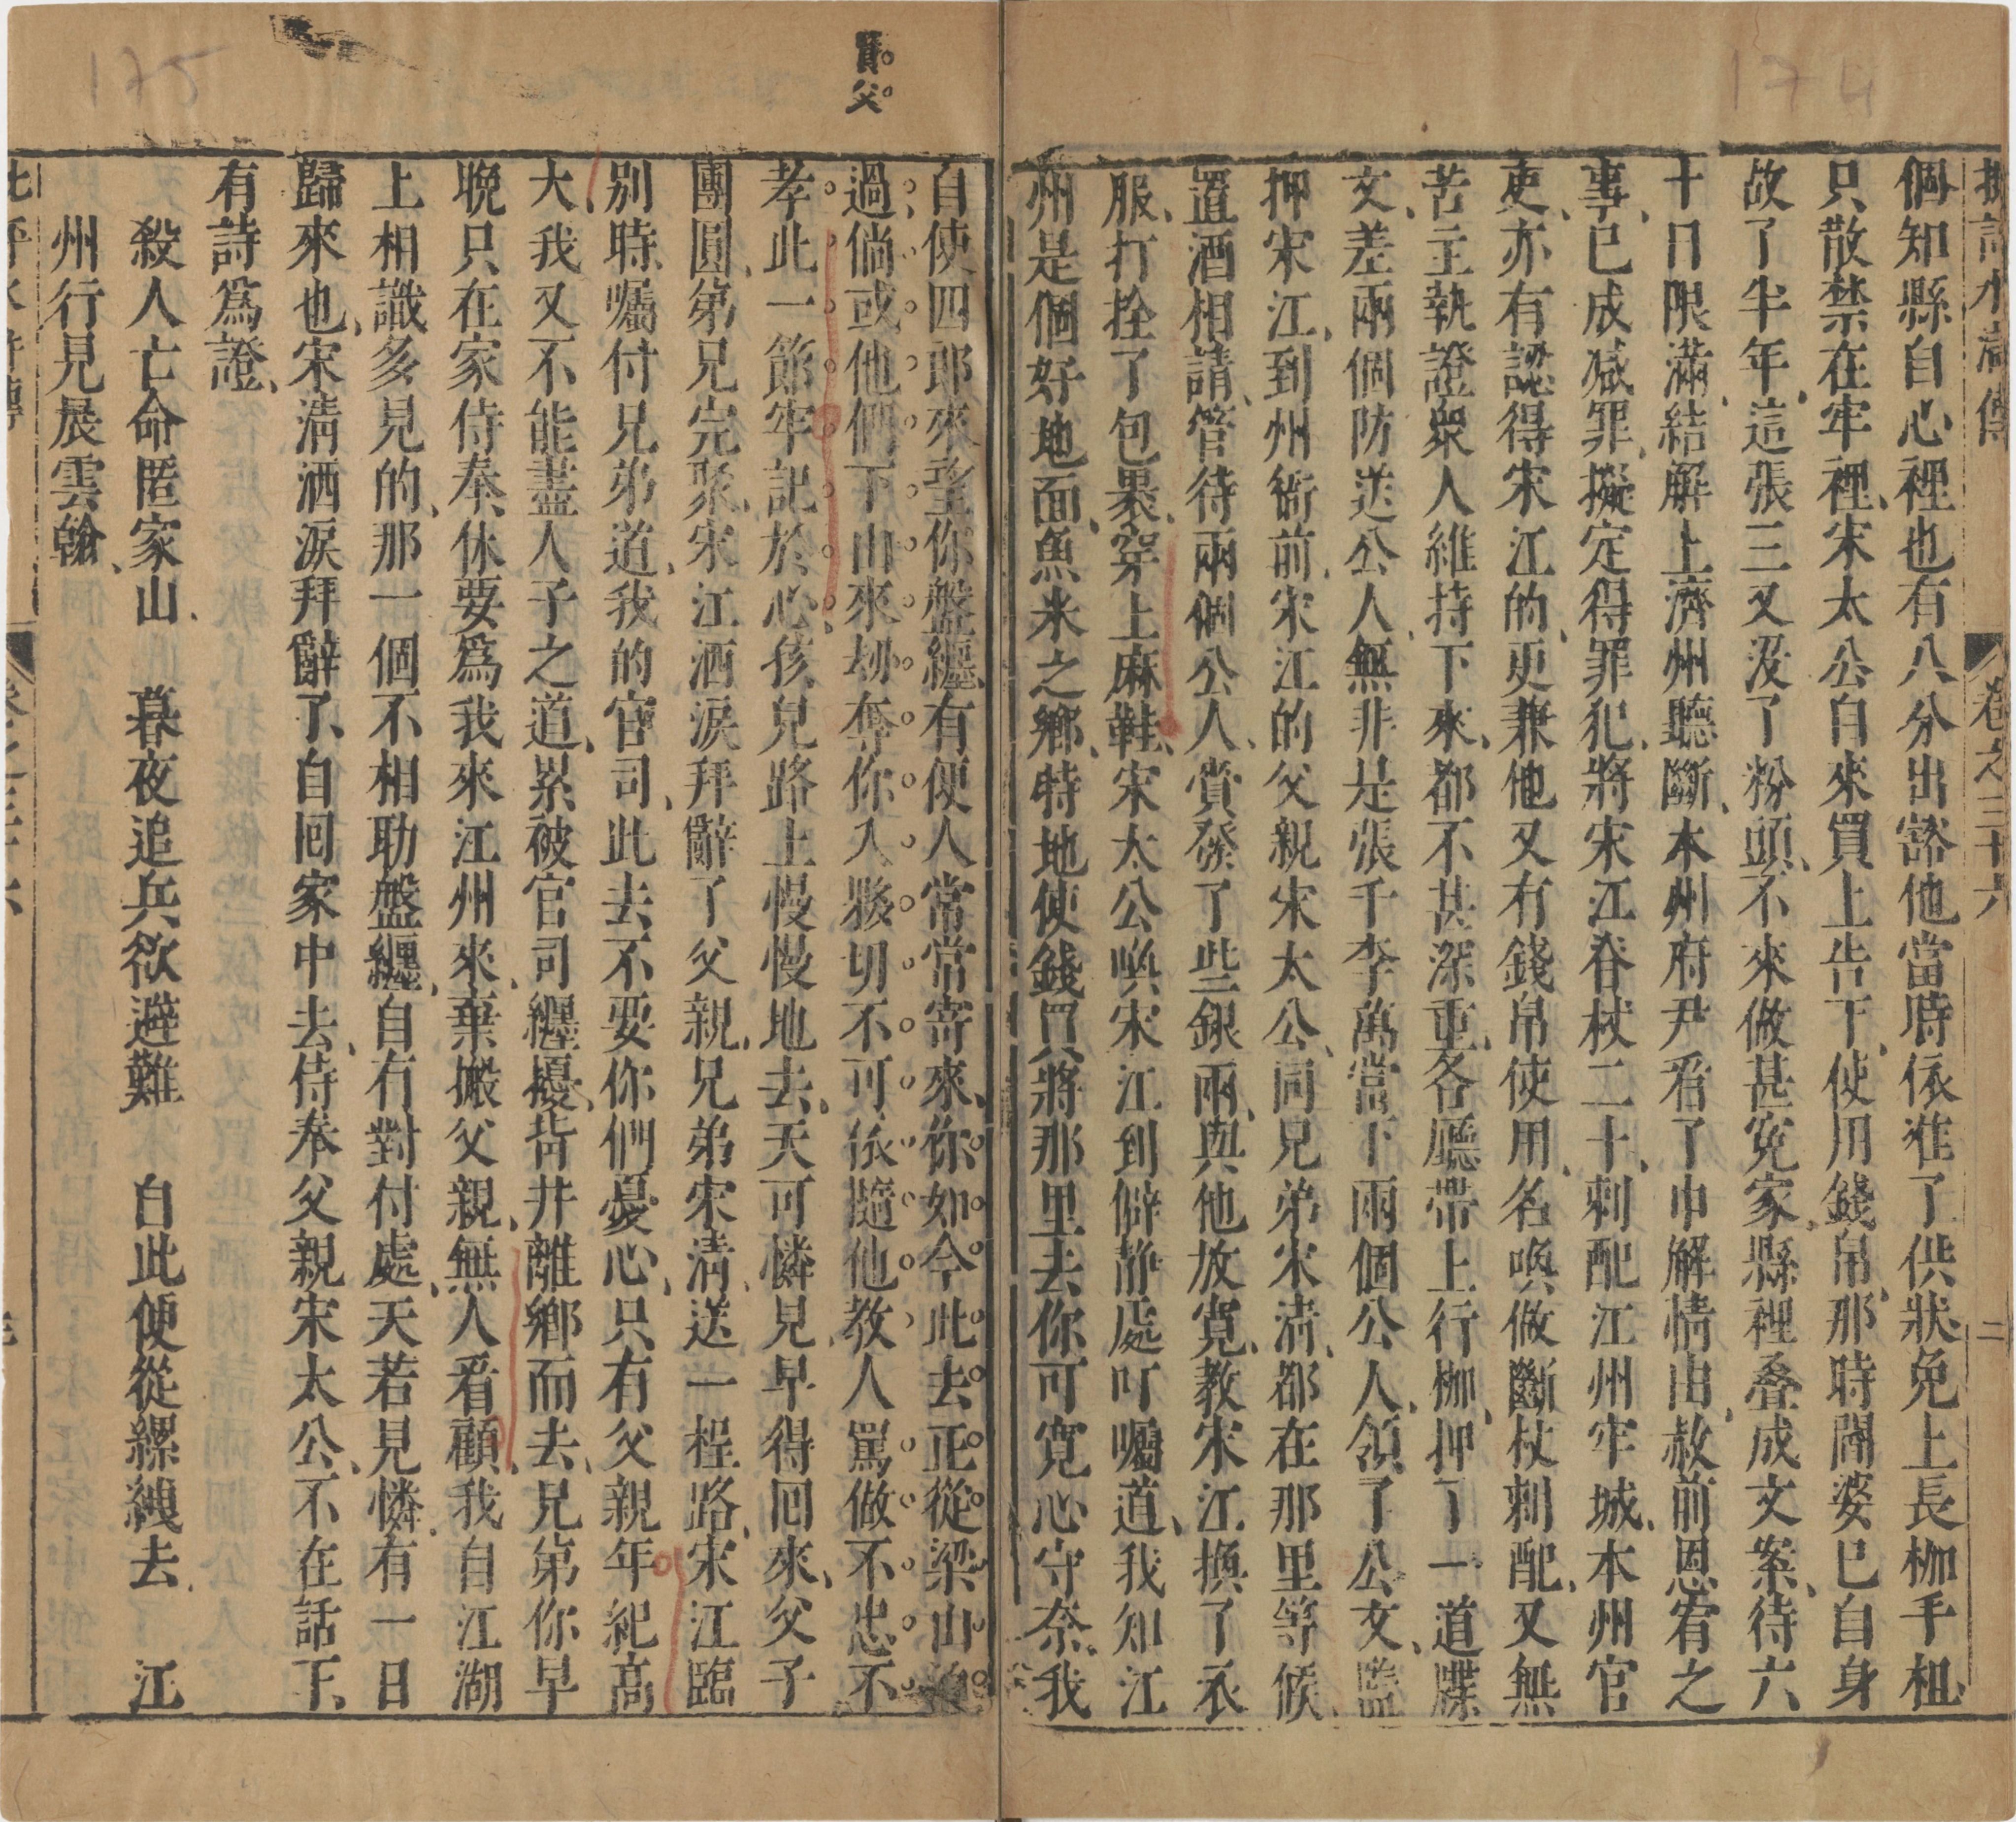 174
批評水滸傳 卷之三十六 二
個知縣自心裡也有八分出豁他當時依准了供狀免上長枷手杻
只散禁在牢裡宋太公自來買上告下使用錢帛那時閻婆已自身
故了半年這張三又没了粉頭不來做甚寃家縣裡叠成文案待六
十日限滿結解上濟州聽斷本州府尹看了申解情由赦前恩宥之
事已成減罪擬定得罪犯將宋江脊杖二十刺配江州牢城本州官
吏亦有認得宋江的更兼他又有錢帛使用名喚做斷杖刺配又無
苦主執證衆人維持下來都不甚深重各廳帶上行枷押了一道牒
文差兩個防送公人無非是張千李萬當下兩個公人領了公文監
押宋江到州衙前宋江的父親宋太公同兄弟宋清都在那里等候
置酒相請管待兩個公人賫發了些銀兩與他放寛教宋江換了衣
服打拴了包裹穿上麻鞋宋太公喚宋江到僻静處叮囑道我知江
州是個好地面魚米之鄉特地使錢買將那里去你可寛心守奈我
賢父
自使四郎來望你盤纏有便人常常寄來你如今此去正從梁山泊
過倘或他們下山來刼奪你入夥切不可依隨他教人罵做不忠不
孝此一節牢記於心孩兒路上慢慢地去天可憐見早得囘來父子
團圓弟兄完聚宋江洒淚拜辭了父親兄弟宋清送一程路宋江臨
别時囑付兄弟道我的官司此去不要你們憂心只有父親年紀高
大我又不能盡人子之道累被官司纏擾背井離鄉而去兄弟你早
晚只在家侍奉休要爲我來江州來棄撇父親無人看顧我自江湖
上相識多見的那一個不相助盤纏自有對付處天若見憐有一日
歸來也宋清洒淚拜辭了自囘家中去侍奉父親宋太公不在話下
有詩爲證
殺人亡命匿家山 暮夜追兵欲避難 自此便從縲絏去 江
州行見展雲翰
175